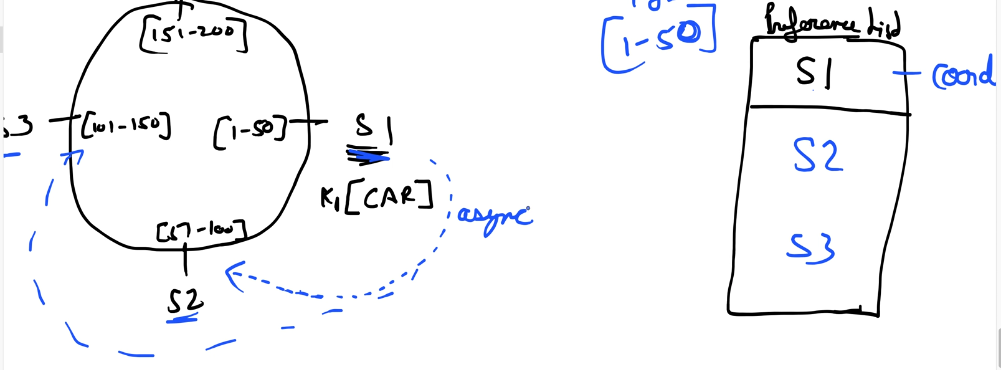 [151-200]
S3
[101-150]
[1-50]
S1
K1[CAR]
async
[57-100]
S2
[1-50]
Preference List
S1
coord
S2
S3